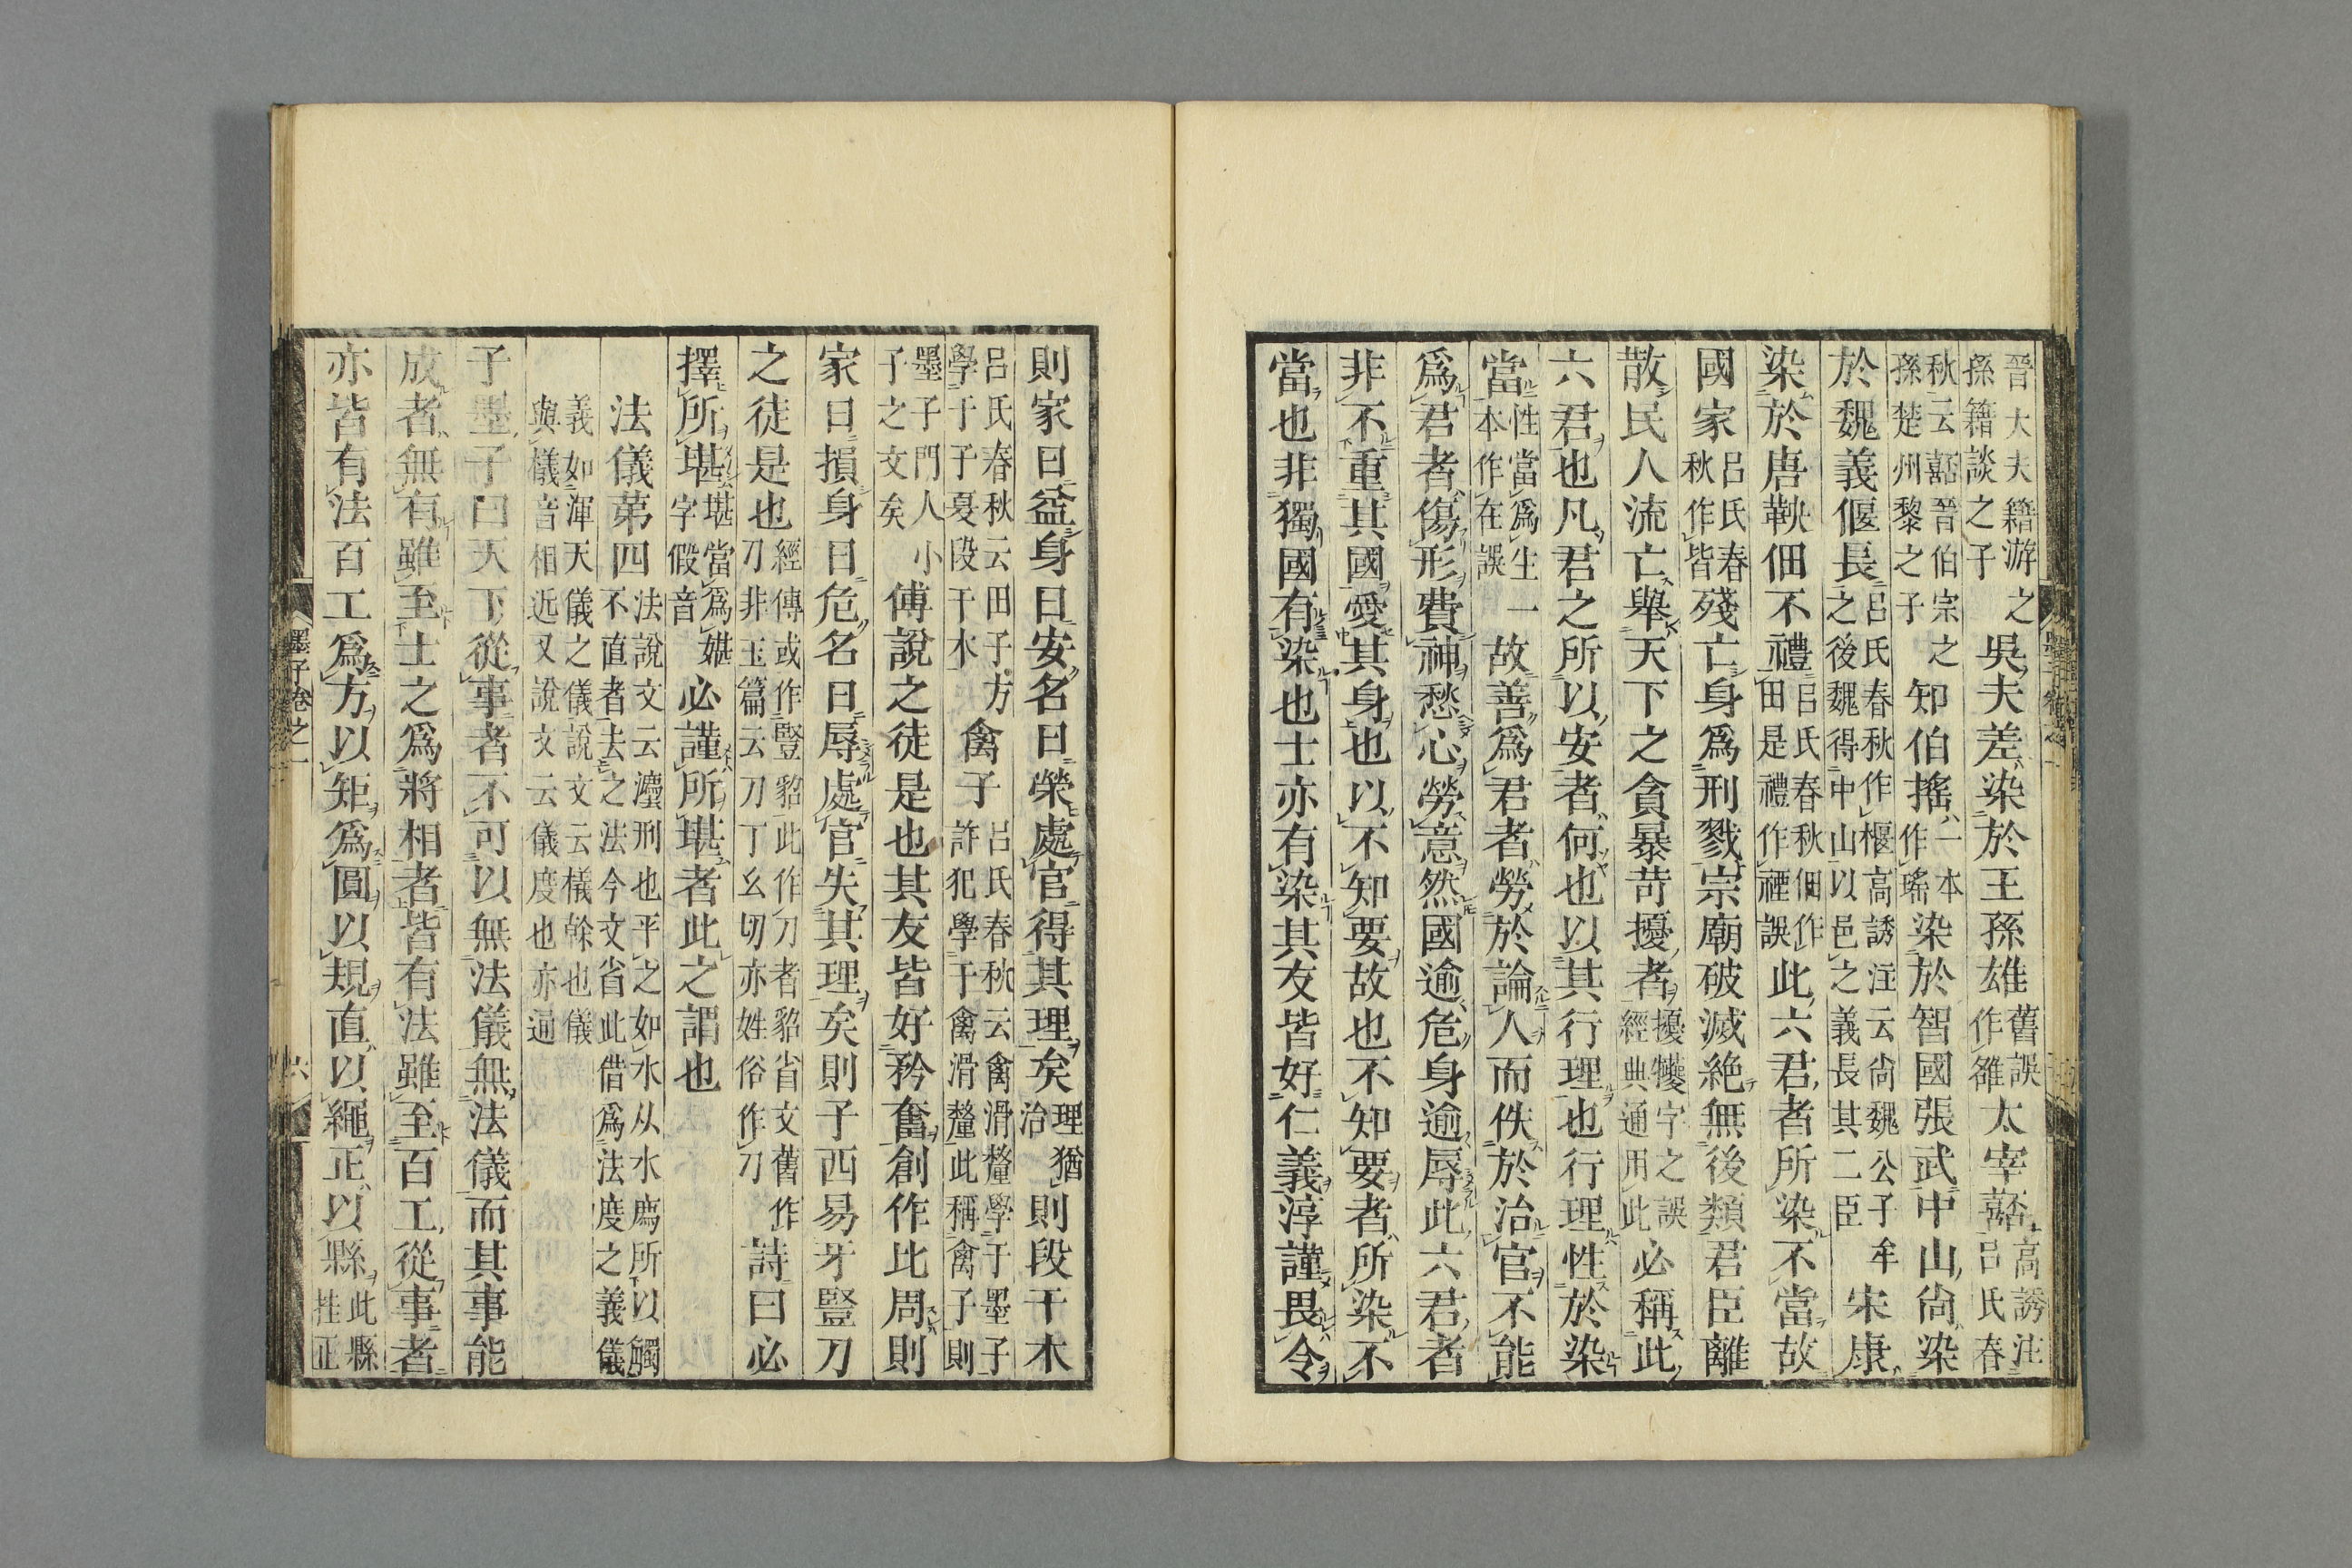 晉大夫籍游之孫籍談之子吳夫差染於王孫雄舊誤作雒太宰嚭高誘注呂氏春
秋云嚭晉伯宗之孫楚州黎之子知伯搖一本作瑤染於智國張武中山尚染
於魏義偃長呂氏春秋作椻高誘注云尚魏公子牟之後魏得中山以邑之義長其二臣宋康
染於唐鞅佃不禮呂氏春秋佃作田是禮作禋誤此六君者所染不當故
國家呂氏春秋作皆殘亡身爲刑戮宗廟破滅絕無後類君臣離
散民人流亡舉天下之貪暴苛擾者擾字之誤經典通用此必稱此
六君也凡君之所以安者何也以其行理也行理性於染
當性當爲生一本作在誤故善爲君者勞於論人而佚於治官不能
爲君者傷形費神愁心勞意然國逾危身逾辱此六君者
非不重其國愛其身也以不知要故也不知要者所染不
當也非獨國有染也士亦有染其友皆好仁義淳謹畏令
則家日益身日安名日榮處官得其理矣理猶治則段干木
呂氏春秋云田子方學于子夏段干木禽子呂氏春秋云禽滑釐學于墨子許犯學于禽滑釐此稱禽子則
墨子門人小子之文矣傅說之徒是也其友皆好矜奮創作比周則
家日損身日危名日辱處官失其理矣則子西易牙豎刀
之徒是也經傳或作豎貂此作刀者貂省文舊作刀非玉篇云刀丁幺切亦姓俗作刁詩曰必
擇所堪堪當爲媅字假音必謹所堪者此之謂也
法儀第四法說文云灋刑也平之如水从水廌所以觸不直者去之法今文省此借爲法度之義儀
義如渾天儀之儀說文云檥榦也儀與檥音相近又說文云儀度也亦通
子墨子曰天下從事者不可以無法儀無法儀而其事能
成者無有雖至士之爲將相者皆有法雖至百工從事者
亦皆有法百工爲方以矩爲圓以規直以繩正以縣此縣挂正
墨子卷之一 六